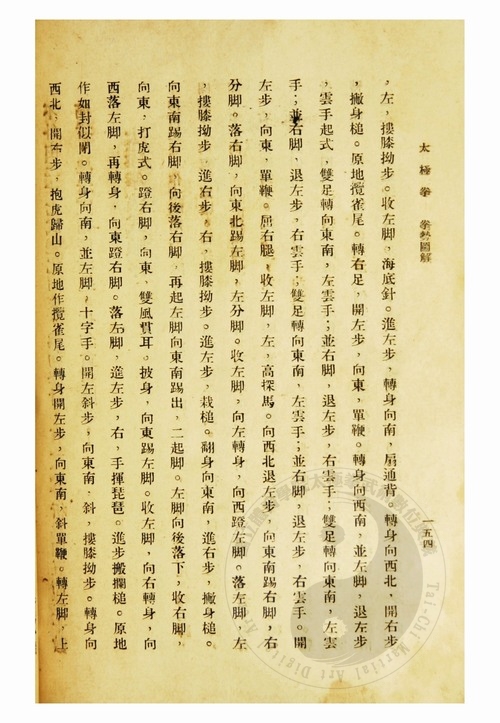 太極拳　拳勢圖解
一五四
，左，摟膝拗步。收左脚，海底針。進左步，轉身向南，扇通背。轉身向西北，開右步
，撇身槌。原地攬雀尾。轉右足，開左步，向東，單鞭。轉身向西南，並左脚，退左步
，雲手起式，雙足轉向東南，左雲手；並右脚，退左步，右雲手；雙足轉向東南，左雲
手；並右脚，退左步，右雲手；雙足轉向東南，左雲手；並右脚，退左步，右雲手。開
左步，向東，單鞭。屈右腿，收左脚，左，高探馬。向西北退左步，向東南踢右脚，右
分脚。落右脚，向東北踢左脚，左分脚。收左脚，向左轉身，向西蹬左脚。落左脚，左
，摟膝拗步，進右步，右，摟膝拗步。進左步，栽槌。翻身向東南，進右步，撇身槌。
向東南踢右脚，向後落右脚，再起左脚向東南踢出，二起脚。左脚向後落下，收右脚，
向東，打虎式。蹬右脚，向東，雙風貫耳。披身，向東踢左脚。收左脚，向右轉身，向
西落左脚，再轉身，向東蹬右脚。落右脚，進左步，右，手揮琵琶。進步搬攔槌。原地
作如封似閉。轉身向南，並左脚，十字手。開左斜步，向東南，斜，摟膝拗步。轉身向
西北，開右步，抱虎歸山。原地作攬雀尾。轉身開左步，向東南，斜單鞭。轉左脚，上
Tai-Chi Martial Art Digit